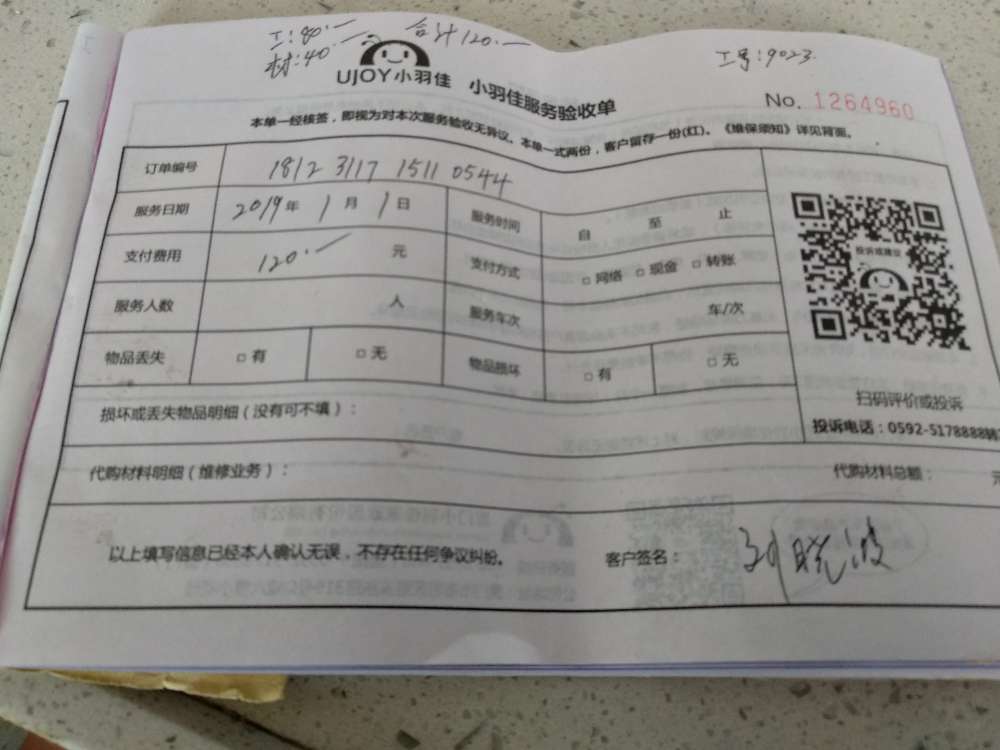 工:80.一 合计120.一
材:40.一
工号:9023
UJOY小羽佳 小羽佳服务验收单
No. 1264960
本单一经核签，即视为对本次服务验收无异议。本单一式两份，客户留存一份(红)。《维保须知》详见背面。
订单编号 1812 3117 1511 0544
服务日期 2019年 1月 1日 服务时间 自 至 止
支付费用 120.一 元 支付方式 □ 网络 □ 现金 □ 转账
服务人数 人 服务车次 年/次
物品丢失 □ 有 □ 无 物品损坏 □ 有 □ 无
投诉或建议
扫码评价或投诉
投诉电话：0592-5178888转
损坏或丢失物品明细（没有可不填）：
代购材料明细（维修业务）： 代购材料总额：
以上填写信息已经本人确认无误，不存在任何争议纠纷。 客户签名： 刘晓波